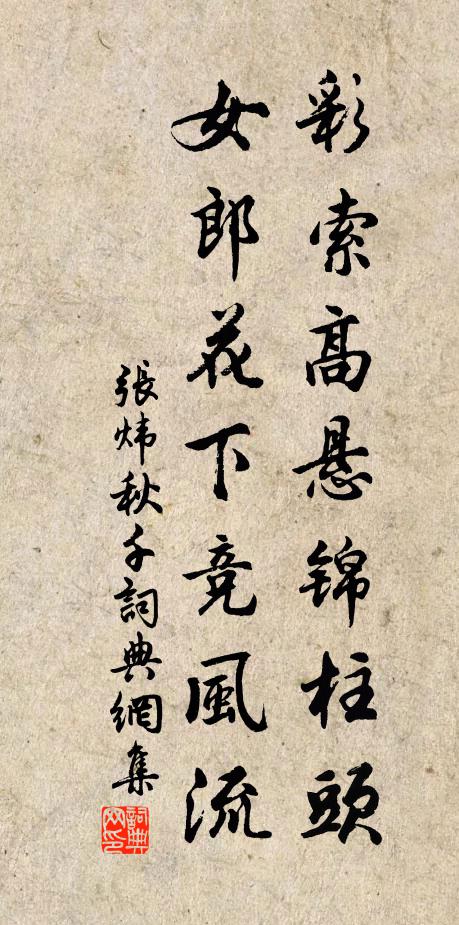 彩索高悬锦柱頭
女郎花下竞風流
張炜秋千詞典網集
詞典网印